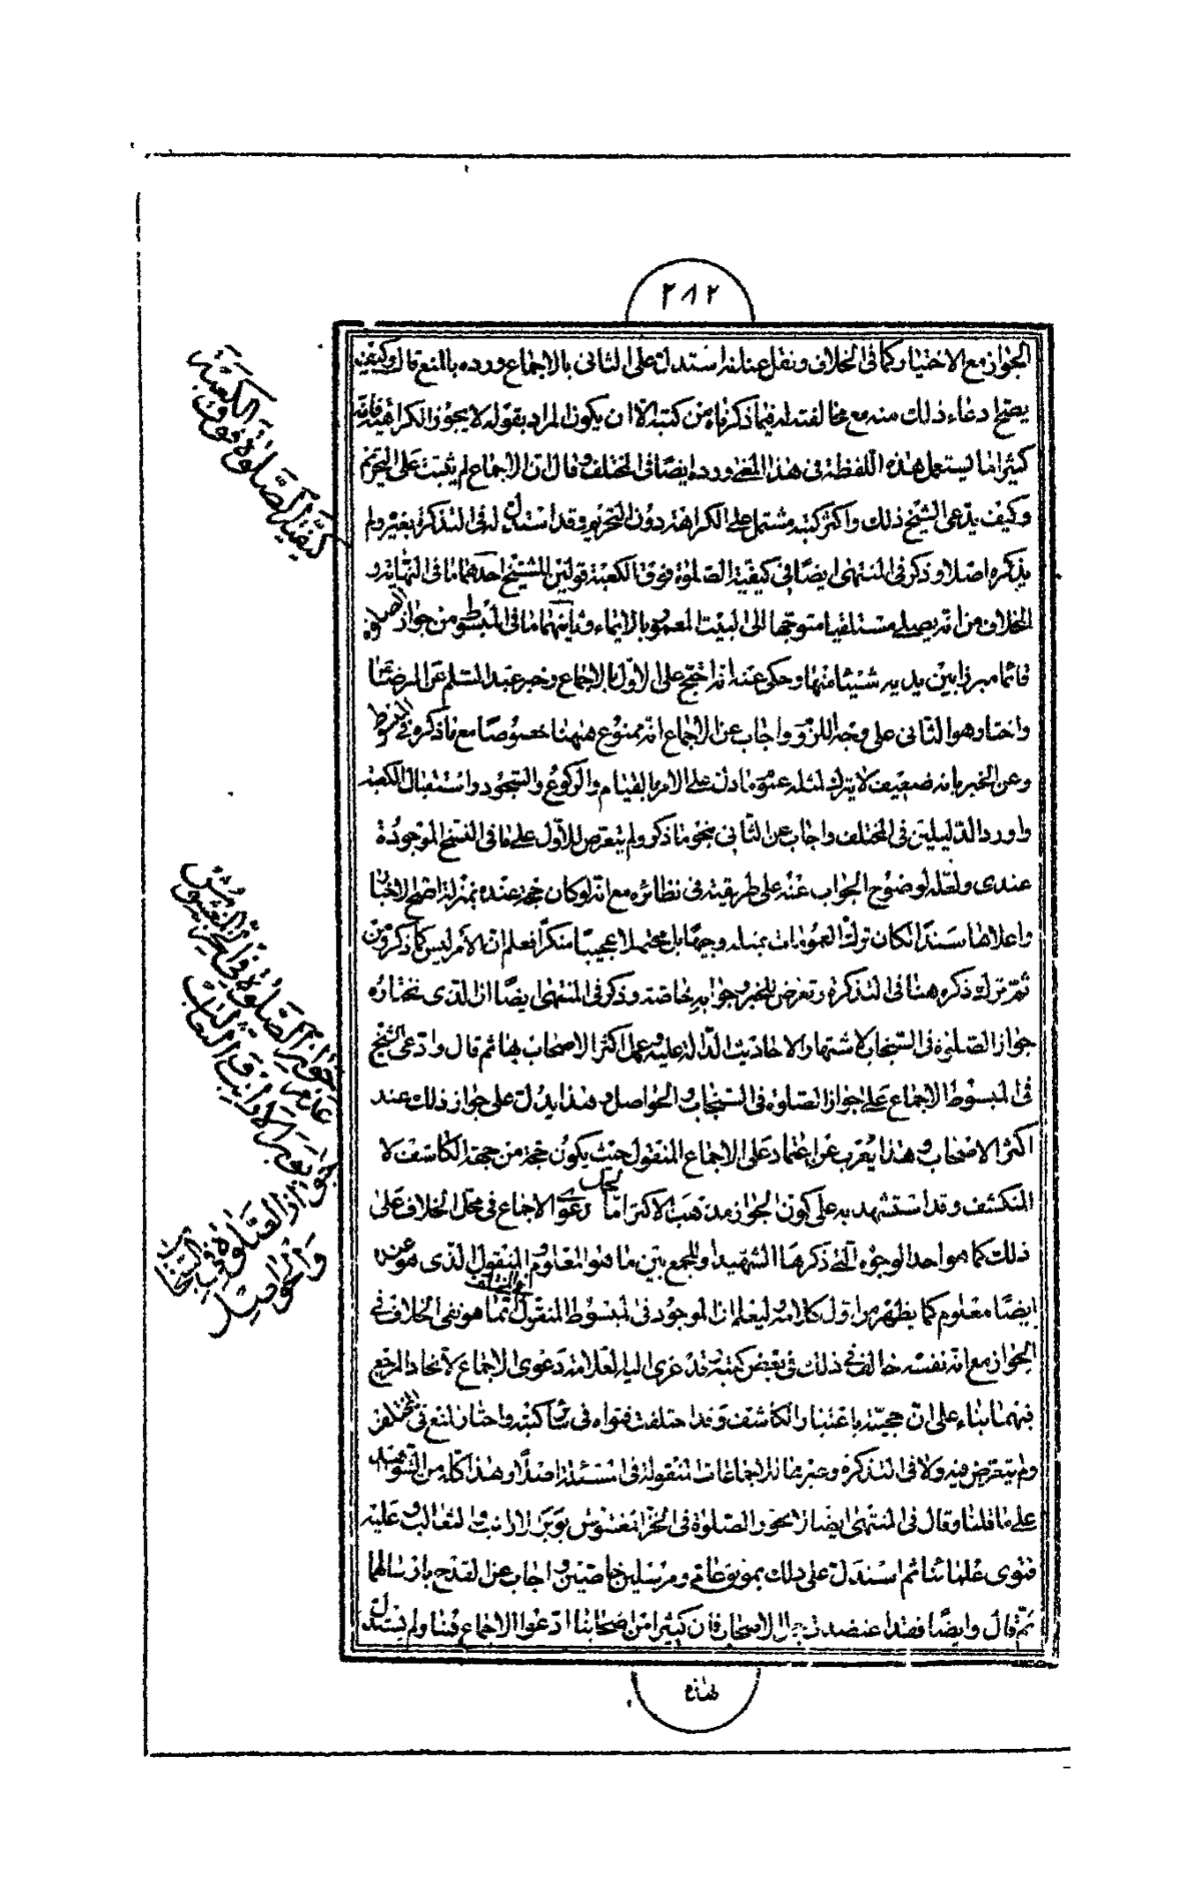 ٢٨٢
الجواز مع الاختيار كما فى الخلاف ونقل عنه انه استدل على الثانى بالاجماع ورده بالمنع قال وكيف
يصح ادعاء ذلك منه مع مخالفته له فيما ذكرناه من كتبه الا ان يكون المراد بقوله لا يجوز الكراهية فانه
كثيرا ما يستعمل هذه اللفظة فى هذا المعنى ورده ايضا فى المختلف وقال ان الاجماع لم يثبت على التحريم
وكيف يدعى الشيخ ذلك واكثر كتبه مشتمل على الكراهة دون التحريم وقد استدل له فى التذكرة بغيره ولم
يذكره اصلا وذكر فى المنتهى ايضا فى كيفية الصلوة فوق الكعبة قولين للشيخ احدهما ما فى النهاية و
الخلاف من انه يصلى مستلقيا متوجها الى البيت المعمور بالايماء وثانيهما ما فى المبسوط من جواز الصلوة
قائما مبرزا بين يديه شيئا منها وحكى عنه انه احتج على الاول بالاجماع وخبر عبد السلم عن الرضا
واختار هو الثانى على وجه اللزوم واجاب عن الاجماع انه ممنوع هيهنا خصوصا مع ما ذكره فى المبسوط
وعن الخبر بانه ضعيف لا يترك لمثله عموم ما دل على الامر بالقيام والركوع والسجود واستقبال الكعبة
واورد الدليلين فى المختلف واجاب عن الثانى بنحو ما ذكر ولم يتعرض للاول على ما فى النسخ الموجودة
عندى ولعله لوضوح الجواب عنه على طريقته فى نظائره مع انه لو كان حجة عنده بمنزلة اصح الاخبار
واعلاها سندا لكان ترك العمومات بمثله وجيها بل محتملا عجيبا منكرا فعلم ان الامر ليس كما ذكرو من
ثم ترك ذكره هنا فى التذكرة وتعرض للخبر وجوابه خاصة وذكر فى المنتهى ايضا ان الذى نختاره
جواز الصلوة فى السنجاب لاشتهار الاحاديث الدالة عليه وعمل اكثر الاصحاب بها ثم قال وادعى الشيخ
فى المبسوط الاجماع على جواز الصلوة فى السنجاب والحواصل وهذا يدل على جواز ذلك عند
اكثر الاصحاب وهذا يعرب عن اعتماد على الاجماع المنقول حيث يكون حجة من جهة الكاشف لا
المنكشف وقد استشهد به على كون الجواز مذهب الاكثر اما دعوى الاجماع فى محل الخلاف على
ذلك كما هو احد الوجوه التى ذكرها الشهيد او للجمع بين ما هو المعلوم والمنقول الذى هو عنده
ايضا معلوم كما يظهر من اول كلامه ليعلم ان الموجود فى المبسوط المنقول انما هو نفى الخلاف فى
الجواز مع انه نفسه خالف فى ذلك فى بعض كتبه وقد عزى اليه العلامة دعوى الاجماع لاتحاد المرجع
فيهما بناء على ان حجيته باعتبار الكاشف وقد اختلفت فتواه فى سائر كتبه واختار المنع فى المختلف
ولم يتعرض فيه ولا فى التذكرة وغيرهما للاجماعات المنقولة فى المسئلة اصلا وهذا كله من الشواهد
على ما قلنا وقال فى المنتهى ايضا لا يجوز الصلوة فى الخز المغشوش بوبر الارانب والثعالب وعليه
فتوى علمائنا ثم استدل على ذلك بمرفوع عامى ومرسلين خاصين واجاب عن القدح بارسالهما
ثم قال وايضا فقد اعتضدت بعمل الاصحاب فان كثيرا من اصحابنا ادعوا الاجماع هنا ولم يستدل
كيفية الصلوة فوق الكعبة
عدم جواز الصلوة فى الخز المغشوش بوبر الارانب والثعالب
جواز الصلوة فى السنجاب والحواصل